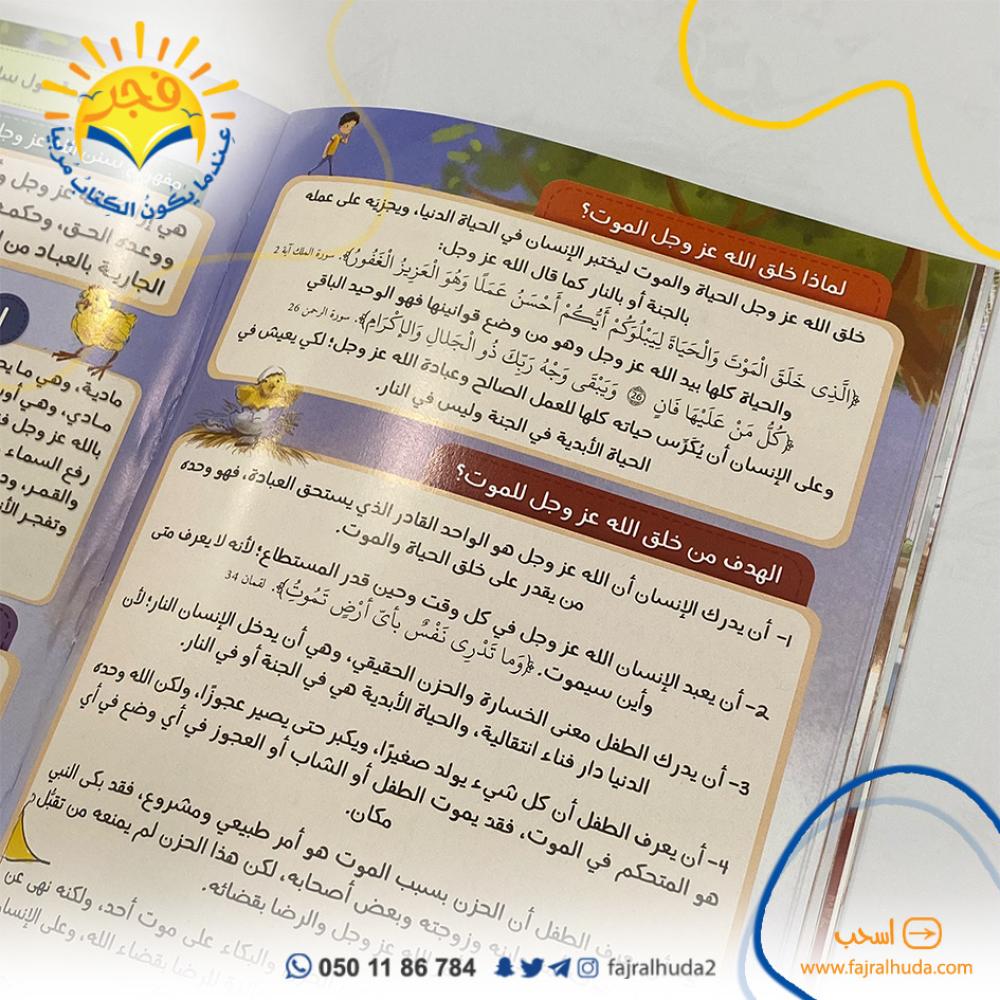 فجر
عِندَما يَكونُ الكِتابُ مَرِحًا
لماذا خلق الله عز وجل الموت؟
خلق الله عز وجل الحياة والموت ليختبر الإنسان في الحياة الدنيا، ويجزيَه على عمله
بالجنة أو بالنار كما قال الله عز وجل:
﴿الَّذِى خَلَقَ الْمَوْتَ وَالْحَيَاةَ لِيَبْلُوَكُمْ أَيُّكُمْ أَحْسَنُ عَمَلًا وَهُوَ الْعَزِيزُ الْغَفُورُ﴾. سورة الملك آية 2
والحياة كلها بيد الله عز وجل وهو من وضع قوانينها فهو الوحيد الباقي
﴿كُلُّ مَنْ عَلَيْهَا فَانٍ 26 وَيَبْقَى وَجْهُ رَبِّكَ ذُو الْجَلَالِ وَالإِكْرَامِ﴾. سورة الرحمن 26
وعلى الإنسان أن يُكَرِّس حياته كلها للعمل الصالح وعبادة الله عز وجل؛ لكي يعيش في
الحياة الأبدية في الجنة وليس في النار.
الهدف من خلق الله عز وجل للموت؟
1- أن يدرك الإنسان أن الله عز وجل هو الواحد القادر الذي يستحق العبادة، فهو وحده
من يقدر على خلق الحياة والموت.
2- أن يعبد الإنسان الله عز وجل في كل وقت وحين قدر المستطاع؛ لأنه لا يعرف متى
وأين سيموت. ﴿وَما تَدْرِى نَفْسٌ بأَىِّ أَرْضٍ تَمُوتُ﴾. لقمان 34
3- أن يدرك الطفل معنى الخسارة والحزن الحقيقي، وهي أن يدخل الإنسان النار؛ لأن
الدنيا دار فناء انتقالية، والحياة الأبدية هي في الجنة أو في النار.
4- أن يعرف الطفل أن كل شيء يولد صغيرًا، ويكبر حتى يصير عجوزًا، ولكن الله وحده
هو المتحكم في الموت، فقد يموت الطفل أو الشاب أو العجوز في أي وضع في أي
مكان.
الطفل أن الحزن بسبب الموت هو أمر طبيعي ومشروع، فقد بكى النبي
وزوجته وبعض أصحابه، لكن هذا الحزن لم يمنعه من تقبُّل
الله عز وجل والرضا بقضائه.
والبكاء على موت أحد، ولكنه نهى عن
للرضا بقضاء الله، وعلى
هي
عز وجل
ووعده الحق، وحكمه
الجارية بالعباد من
مادية، وهي ما
مادي، وهي
بالله عز وجل
رفع السماء
والقمر،
وتفجر
050 11 86 784
fajralhuda2
اسحب
www.fajralhuda.com